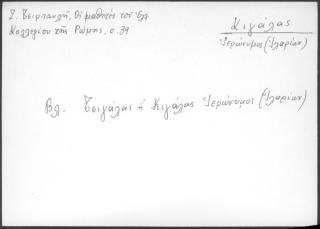 Ζ. Τσιρπανλῆ, Οἱ μαθητές τοῦ Ἑλλ.
Κολλεγίου τῆς Ρώμης, σ. 39
Κιγάλας
Ἱερώνυμος (Ἱλαρίων)
Βλ. Τσιγάλας ἤ Κιγάλας Ἱερώνυμος (Ἱλαρίων)